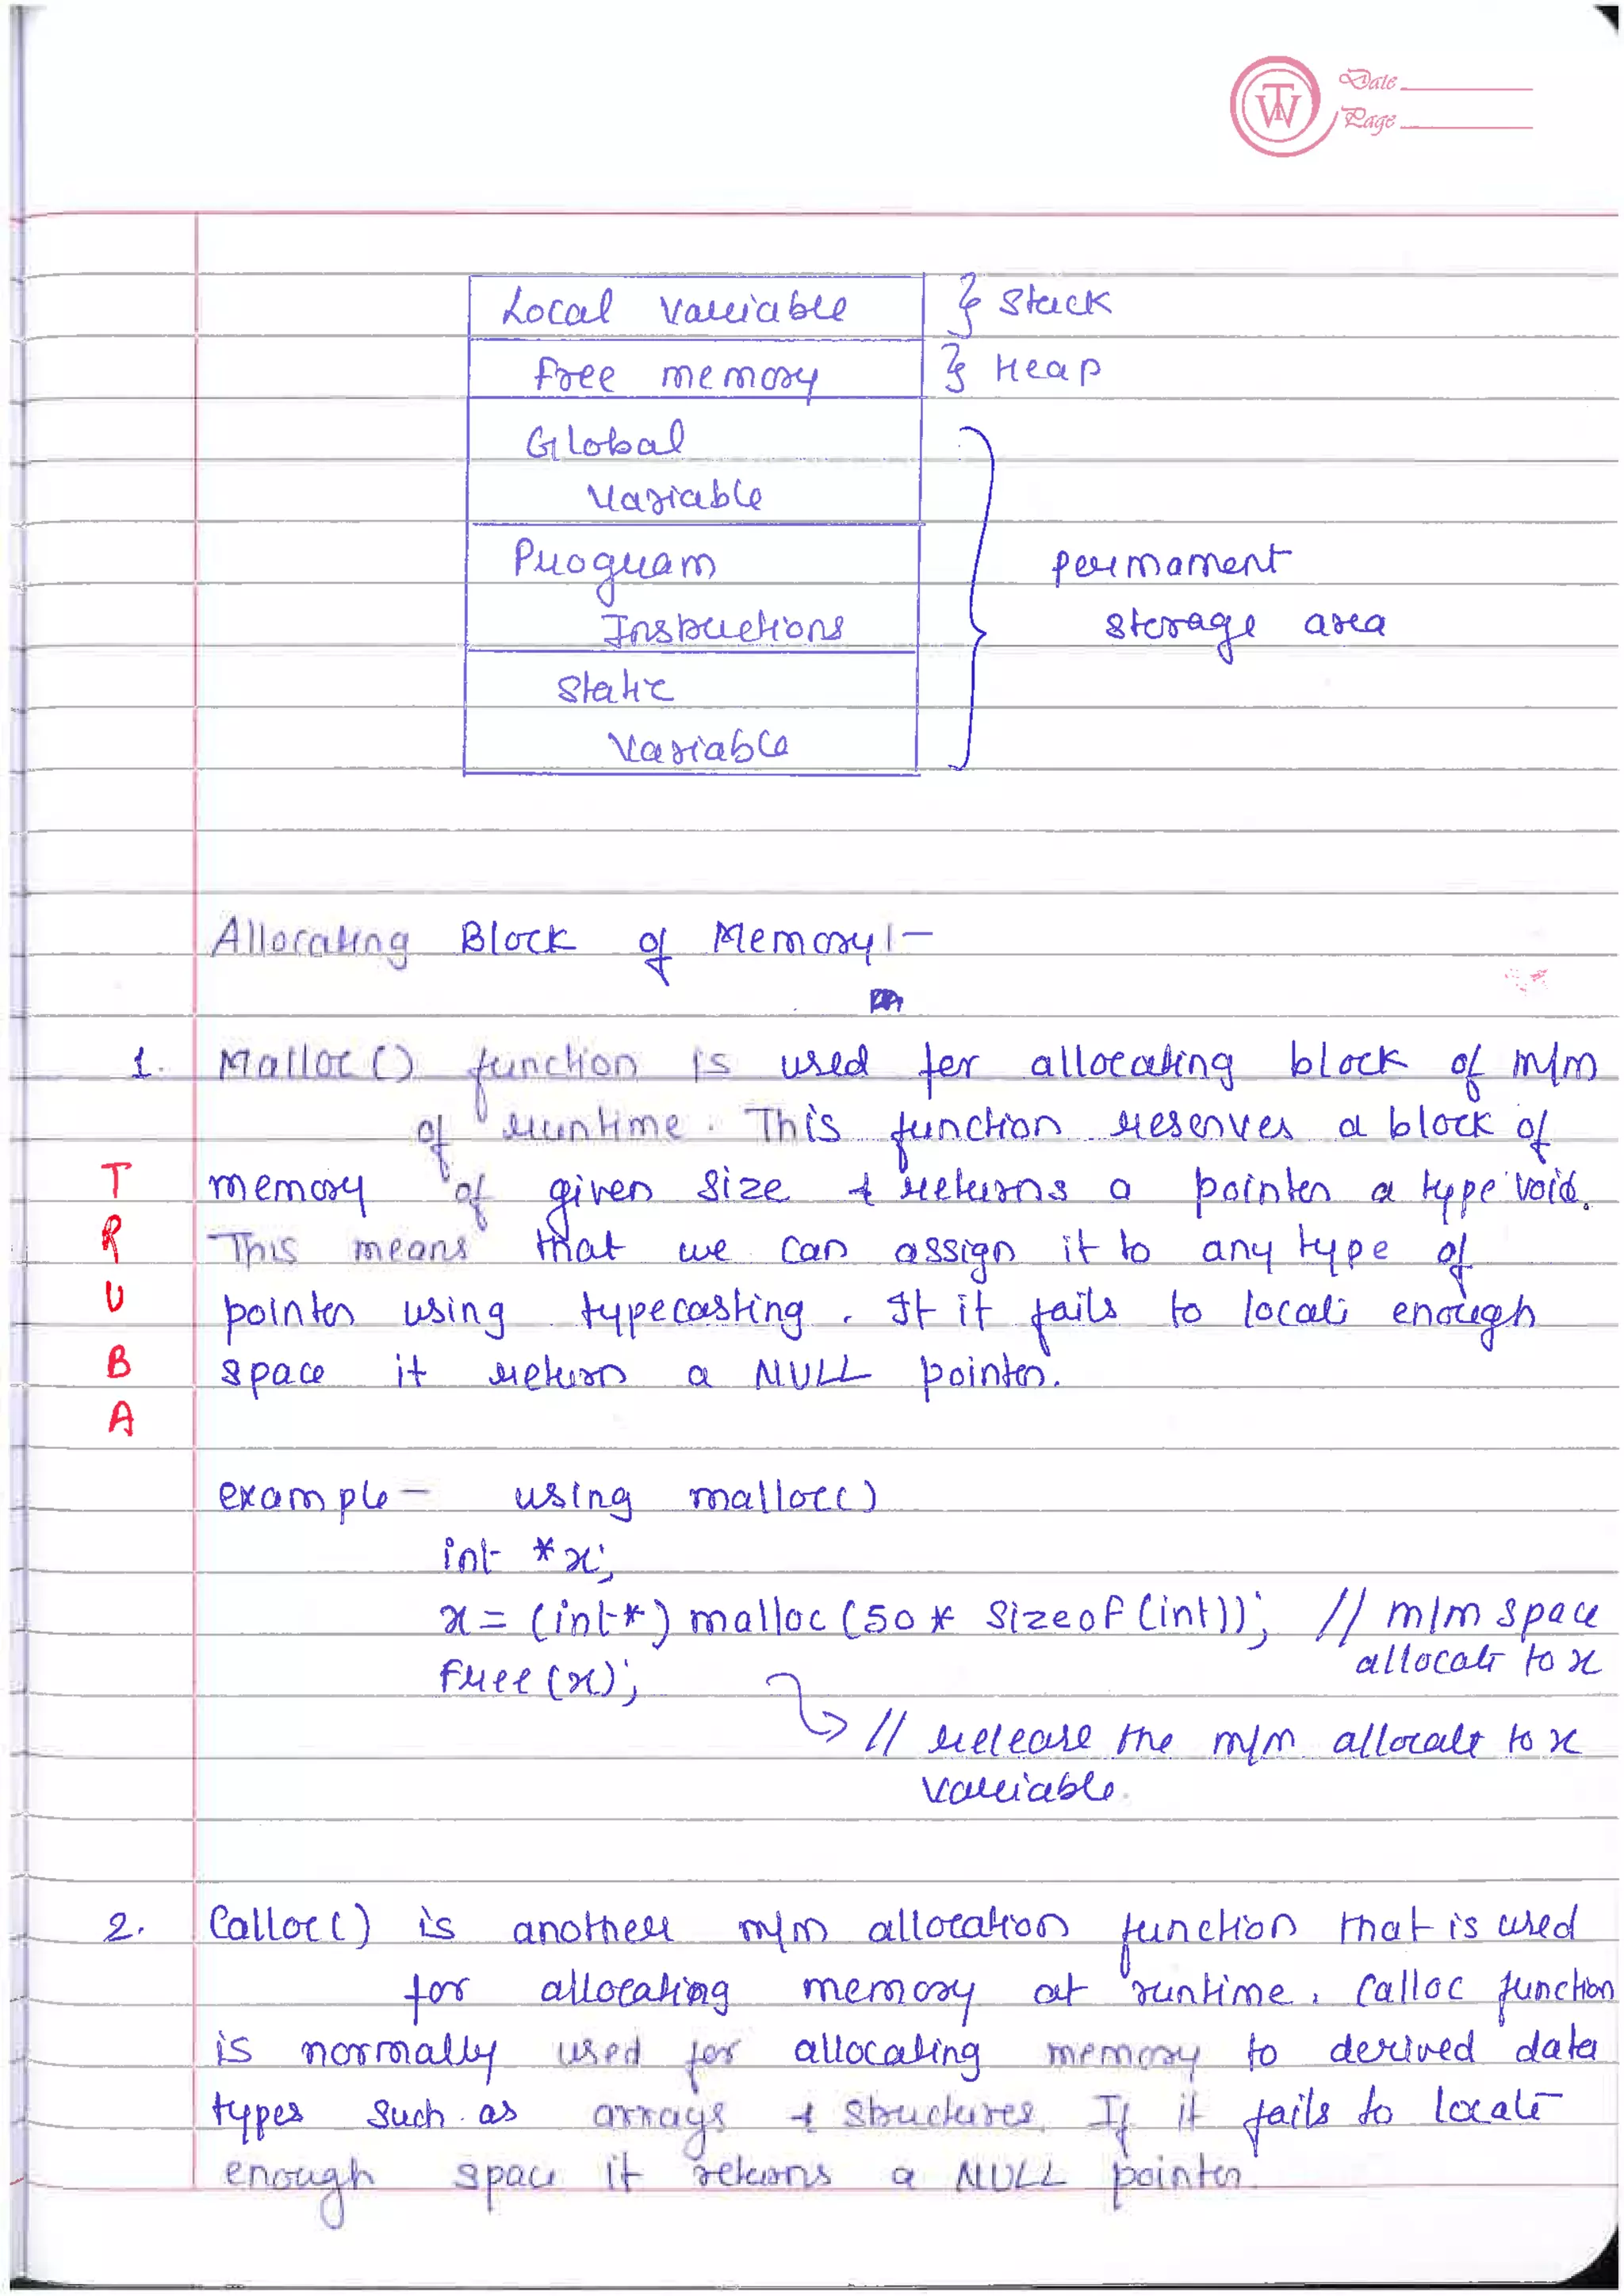 Date
Page
TW
Local Variable } Stack
Free memory } Heap
Global
Variable
Program
Instructions
permament
storage area
Static
Variable
Allocating Block of Memory! -
1. Malloc () function is used for allocating block of m/m
of runtime. This function reserves a block of
memory of given size & returns a pointer a type void.
This means that we can assign it to any type of
pointer using typecasting. It it fails to locate enough
space it return a NULL pointer.
T
R
U
B
A
example - using malloc()
int *x;
x = (int*) malloc (50 * sizeof (int)); // m/m space
allocate to x
free (x);
// release the m/m allocate to x
variable.
2. Calloc () is another m/m allocation function that is used
for allocating memory at runtime. Calloc function
is normally used for allocating memory to derived data
types such as arrays & structures. If it fails to locate
enough space it returns a NULL pointer.